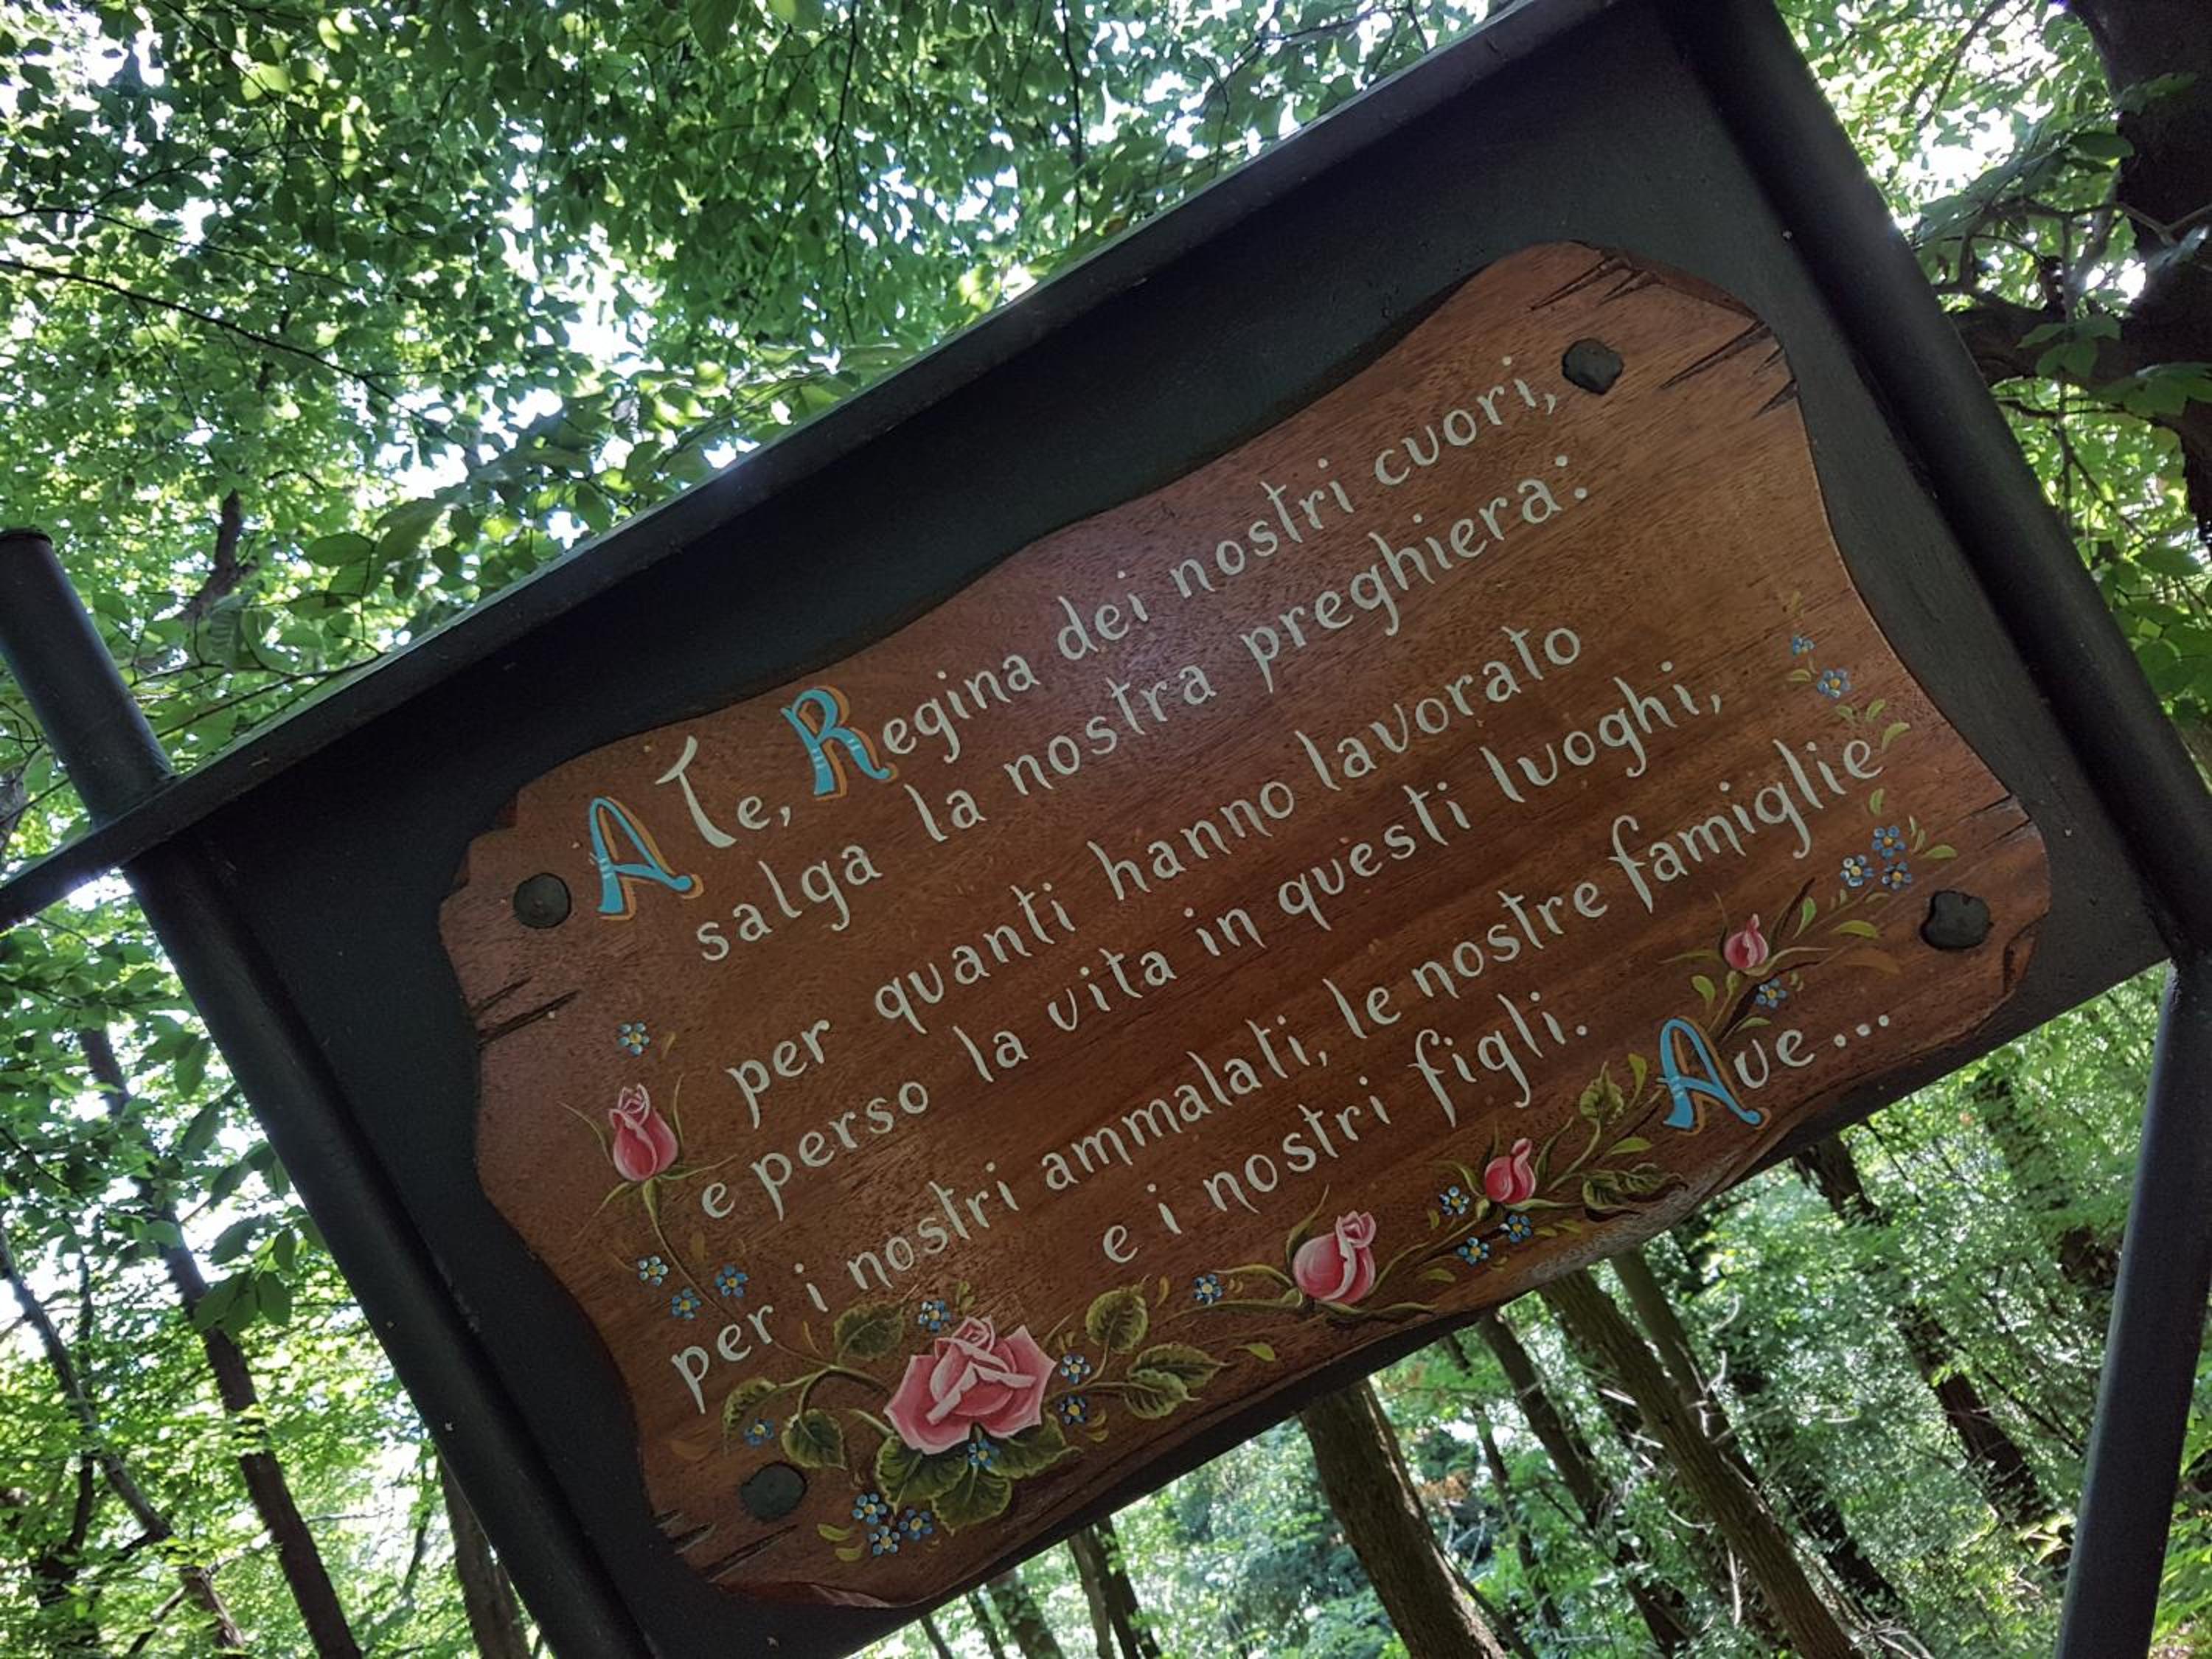 A Te, Regina dei nostri cuori,
salga la nostra preghiera:
per quanti hanno lavorato
e perso la vita in questi luoghi,
per i nostri ammalati, le nostre famiglie
e i nostri figli.
Ave...